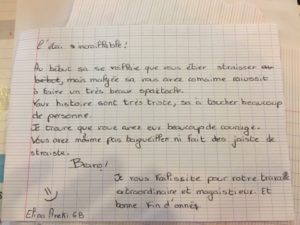 L'étai incroillable!
Au début sa se voillie que vous étier straisser au
début, mais malgée sa vous avez comaime réussit
à faire un très beaux spaictacle.
Vaux histoire sont très triste, sa a toucher beaucoup
de personne.
Je trouve que vous avez eux beaucoup de courage.
Vous avez maime pas bagueiller ni fait des jaiste de
straiste.
Bravo!
Je vous félissite pour votre travaille
extraordinaire et magaistieux. Et
bonne fin d'année.
Elina 6B